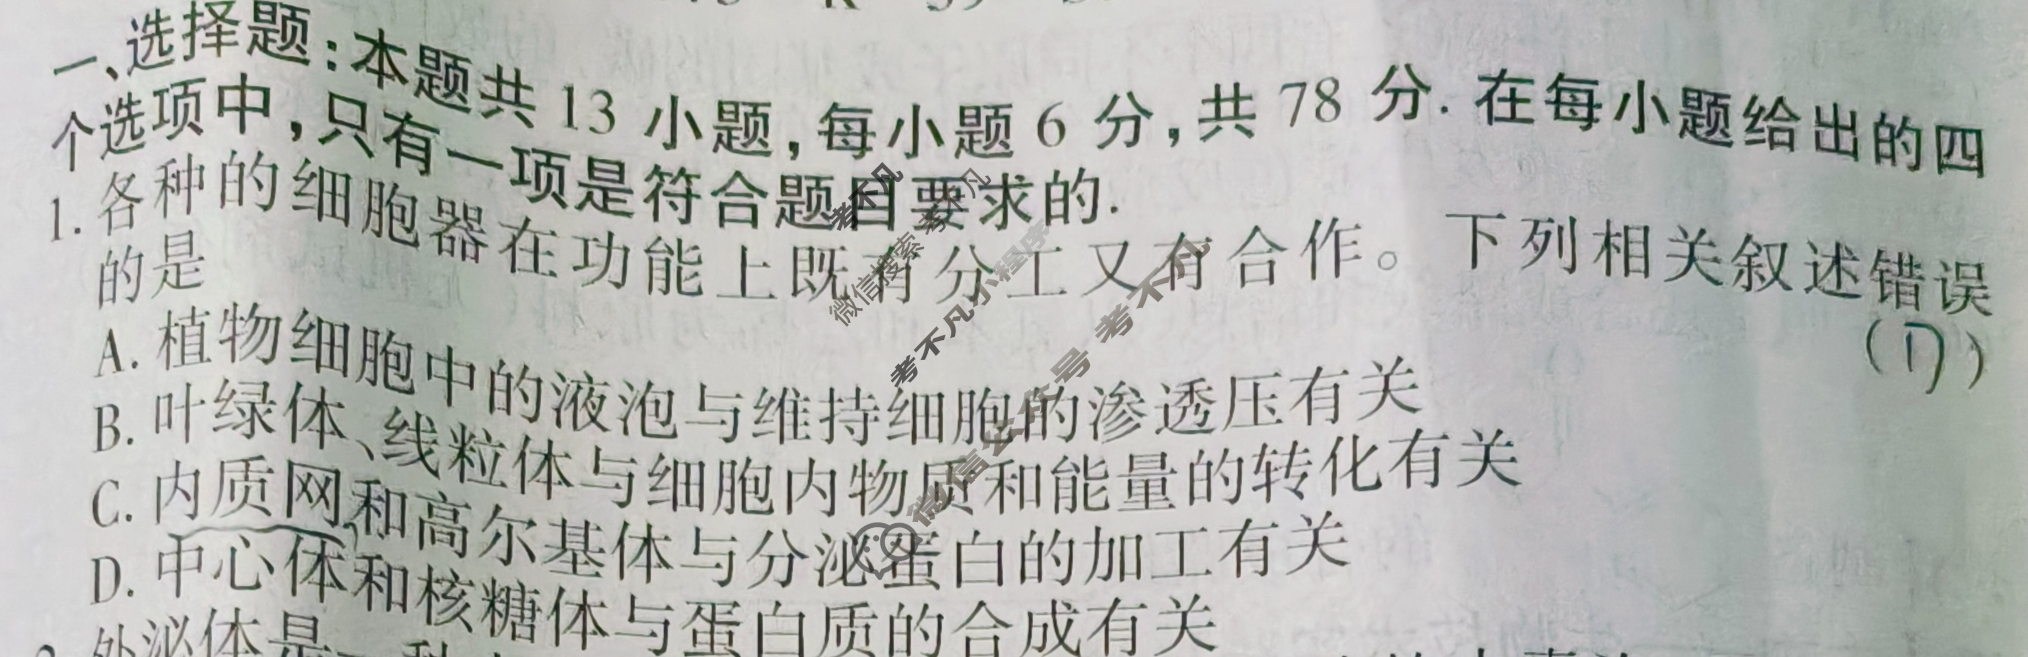 一、选择题:本题共 13 小题,每小题 6 分,共 78 分. 在每小题给出的四
个选项中,只有一项是符合题目要求的.
1. 各种的细胞器在功能上既有分工又有合作。下列相关叙述错误
的是
(D)
A. 植物细胞中的液泡与维持细胞的渗透压有关
B. 叶绿体、线粒体与细胞内物质和能量的转化有关
C. 内质网和高尔基体与分泌蛋白的加工有关
D. 中心体和核糖体与蛋白质的合成有关
外泌体是一种
考不凡
微信搜索 考不凡
考不凡小程序
微信公众号 考不凡